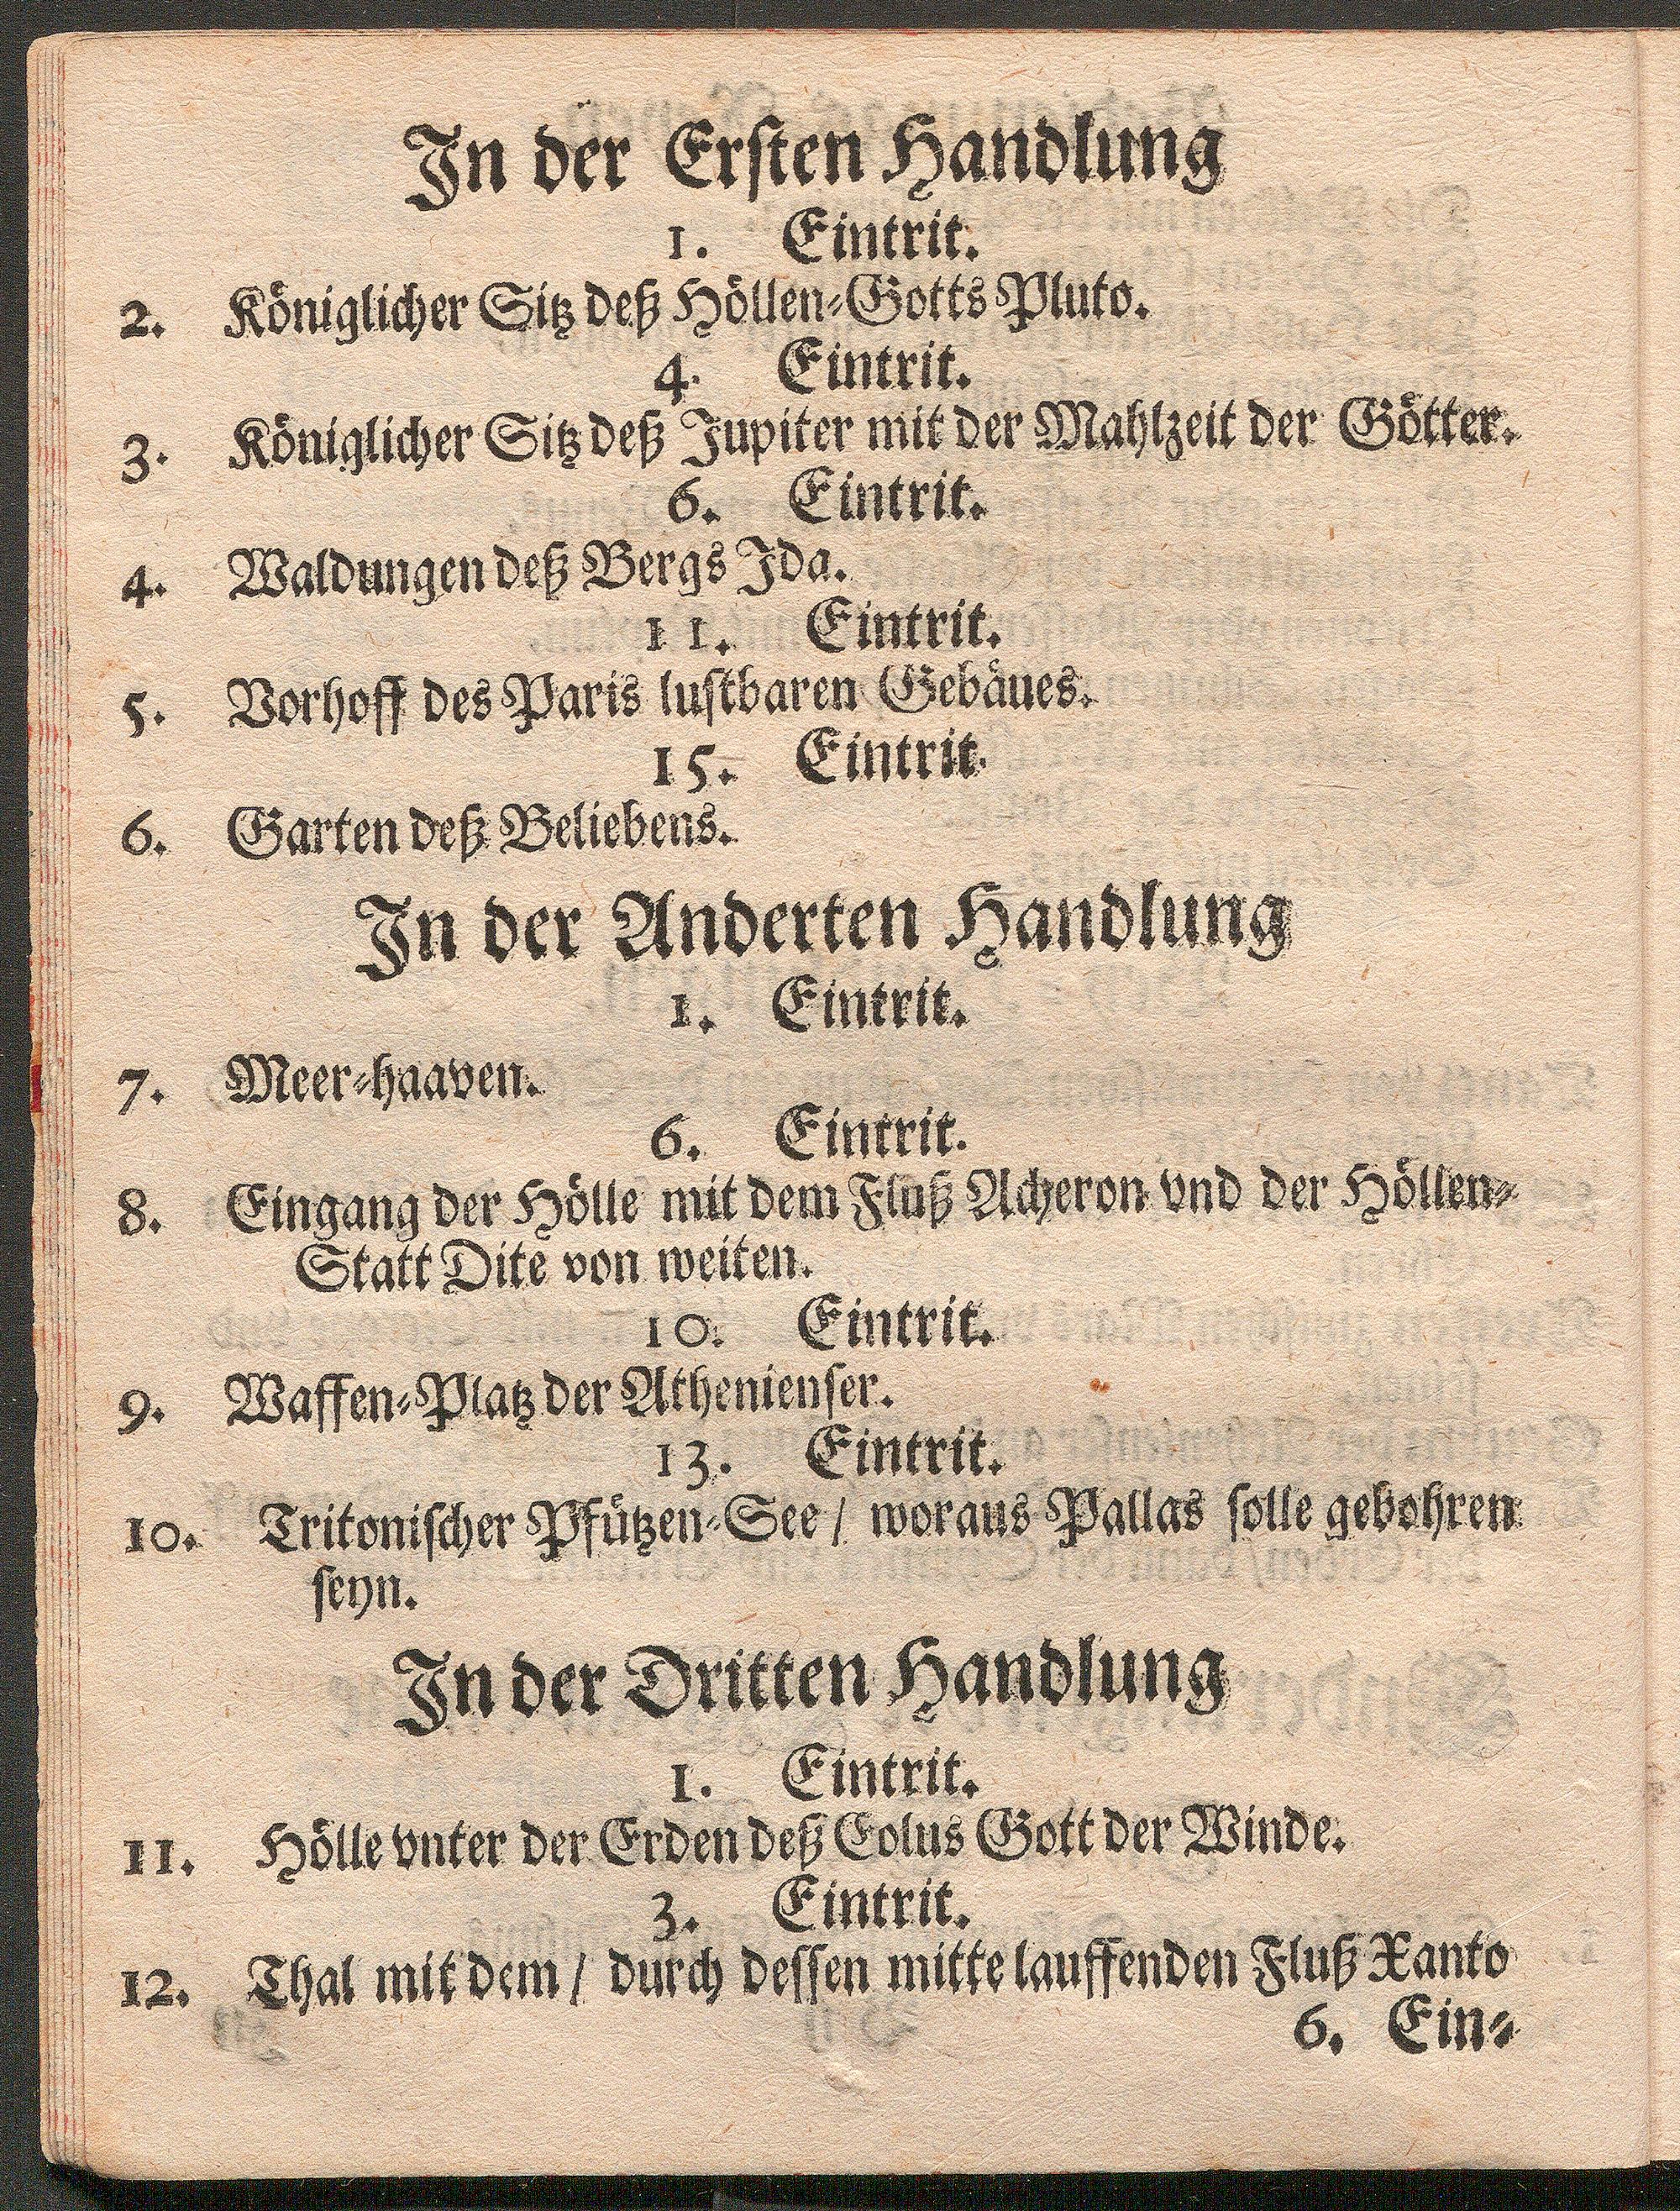 In der Ersten Handlung
1. Eintrit.
2. Königlicher Sitz deß Höllen-Gotts Pluto.
4. Eintrit.
3. Königlicher Sitz deß Jupiter mit der Mahlzeit der Götter.
6. Eintrit.
4. Waldungen deß Bergs Ida.
11. Eintrit.
5. Vorhoff des Paris lustbaren Gebäues.
15. Eintrit.
6. Garten deß Beliebens.
In der Anderten Handlung
1. Eintrit.
7. Meer-haaven.
6. Eintrit.
8. Eingang der Hölle mit dem Fluß Acheron vnd der Höllen-
Statt Dite von weiten.
10. Eintrit.
9. Waffen-Platz der Athenienser.
13. Eintrit.
10. Tritonischer Pfützen-See / woraus Pallas solle gebohren
seyn.
In der Dritten Handlung
1. Eintrit.
11. Hölle vnter der Erden deß Eolus Gott der Winde.
3. Eintrit.
12. Thal mit dem / durch dessen mitte lauffenden Fluß Xanto
6. Ein-